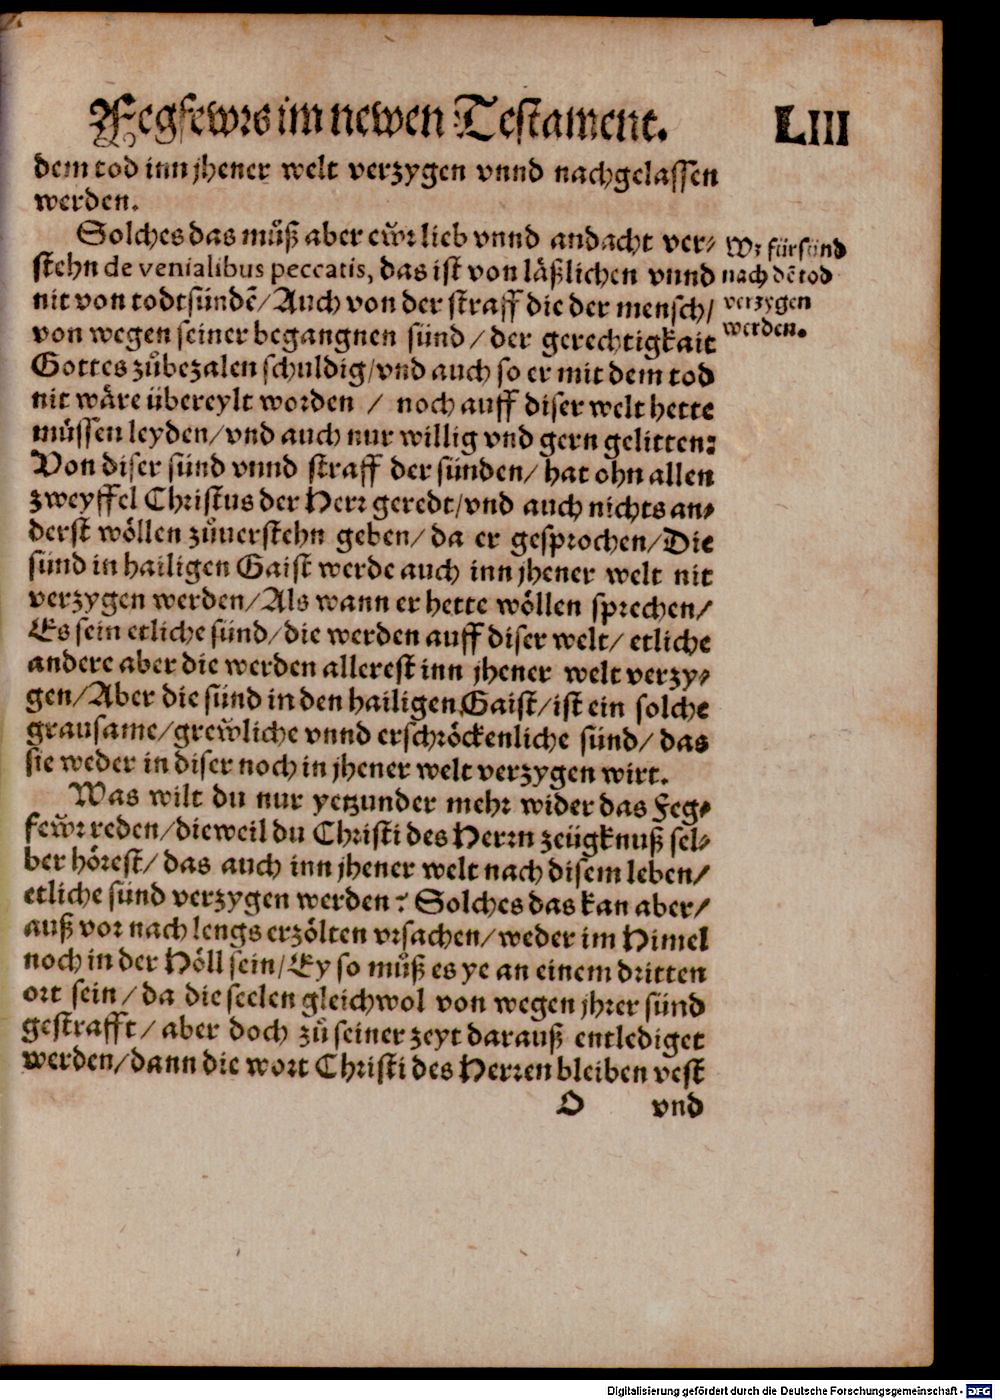 Fegfewrs im newen Testament. LIII
dem tod inn jhener welt verzygen vnnd nachgelassen
werden.
Solches das muͦß aber ewr lieb vnnd andacht ver⸗
stehn de venialibus peccatis, das ist von läßlichen vnnd
nit von todtsündē/Auch von der straff die der mensch/
von wegen seiner begangnen sünd/der gerechtigkait
Gottes zuͦbezalen schuldig/vnd auch so er mit dem tod
nit wäre übereylt worden / noch auff diser welt hette
müssen leyden/vnd auch nur willig vnd gern gelitten:
Von diser sünd vnnd straff der sünden/hat ohn allen
zweyffel Christus der Herr geredt/vnd auch nichts an⸗
derst wöllen zuͦuerstehn geben/da er gesprochen/Die
sünd in hailigen Gaist werde auch inn jhener welt nit
verzygen werden/Als wann er hette wöllen sprechen/
Es sein etliche sünd/die werden auff diser welt/etliche
andere aber die werden allerest inn jhener welt verzy⸗
gen/Aber die sünd in den hailigen Gaist/ist ein solche
grausame/grewliche vnnd erschröckenliche sünd/das
sie weder in diser noch in jhener welt verzygen wirt.
Was wilt du nur yetzunder mehr wider das Feg⸗
fewr reden/dieweil du Christi des Herrn zeügknuß sel⸗
ber hörest/das auch inn jhener welt nach disem leben/
etliche sünd verzygen werden? Solches das kan aber/
auß vor nach lengs erzölten vrsachen/weder im Himel
noch in der Höll sein/Ey so muͦß es ye an einem dritten
ort sein/da die seelen gleichwol von wegen jhrer sünd
gestrafft/aber doch zuͦ seiner zeyt darauß entlediget
werden/dann die wort Christi des Herren bleiben vest
O vnd
Wz für sünd
nach dē tod
verzygen
werden.
Digitalisierung gefördert durch die Deutsche Forschungsgemeinschaft - DFG